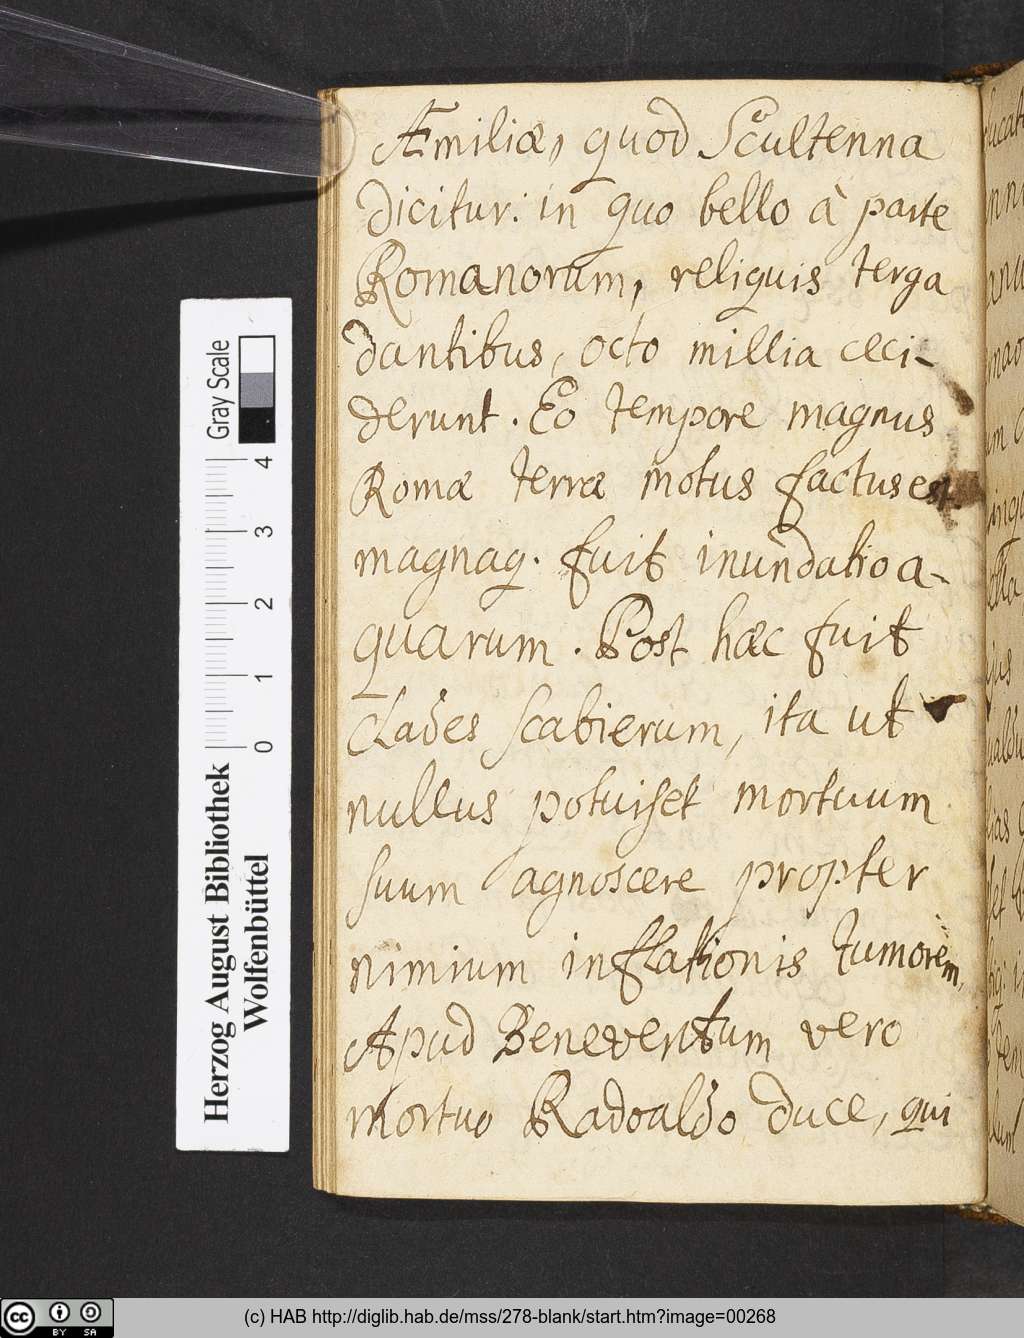 Æmiliæ, quod Scultenna
dicitur: in quo bello à parte
Romanorum, reliquis terga
dantibus, octo millia ceci-
derunt. Eo tempore magnus
Romæ terræ motus factus est
magnaq. fuit inundatio a-
quarum. Post hæc fuit
clades scabierum, ita ut
nullus potuisset mortuum
suum agnoscere propter
nimium inflationis tumorem.
Apud Beneventum vero
mortuo Radoaldo duce, qui
Gray Scale
0 1 2 3 4
Herzog August Bibliothek
Wolfenbüttel
cc BY SA
(c) HAB http://diglib.hab.de/mss/278-blank/start.htm?image=00268